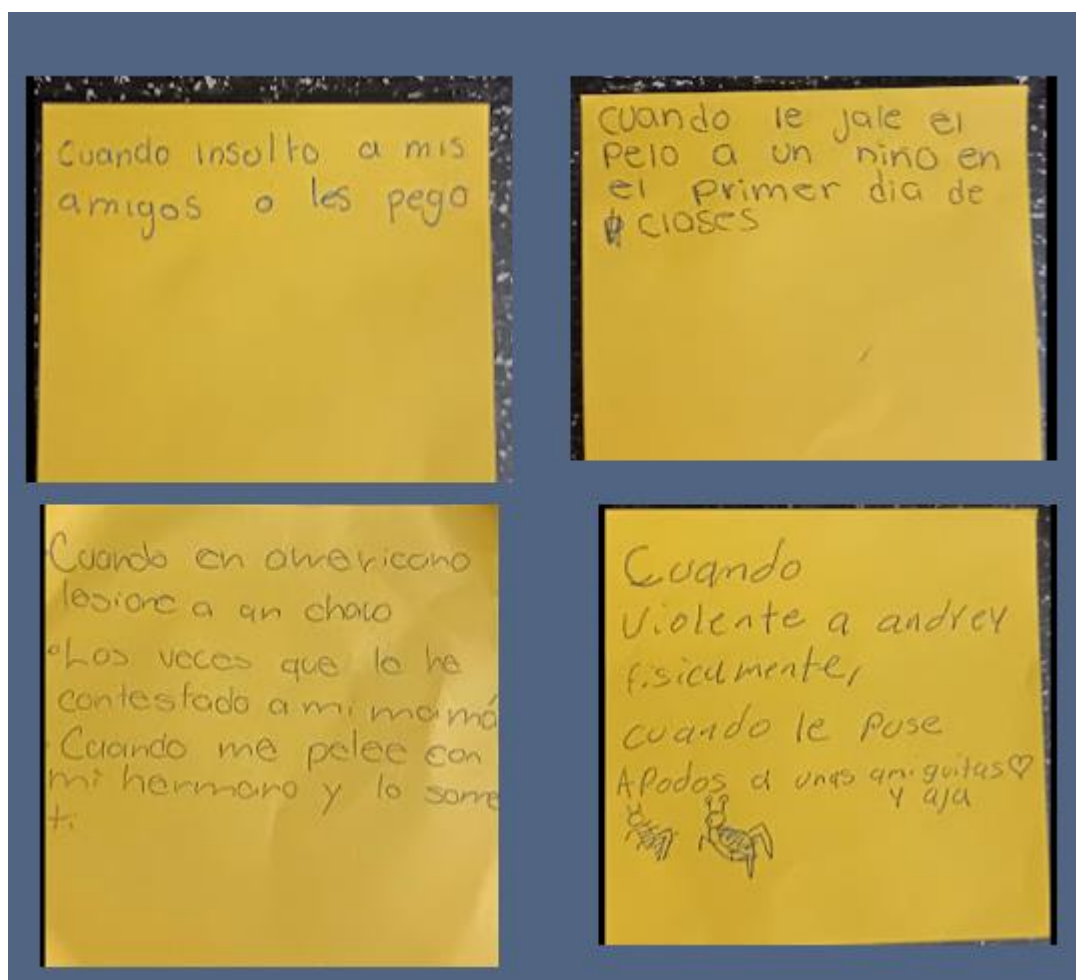 Cuando insulto a mis
amigos o les pego
cuando le jale el
pelo a un nino en
el primer dia de
clases
Cuando en americano
lesione a un chavo
Las veces que le he
contestado a mi mamá
Cuando me pelee con
mi hermano y lo some
ti
Cuando
violente a andrey
fisicamente,
cuando le puse
Apodos a unas amiguitas♡
y aja